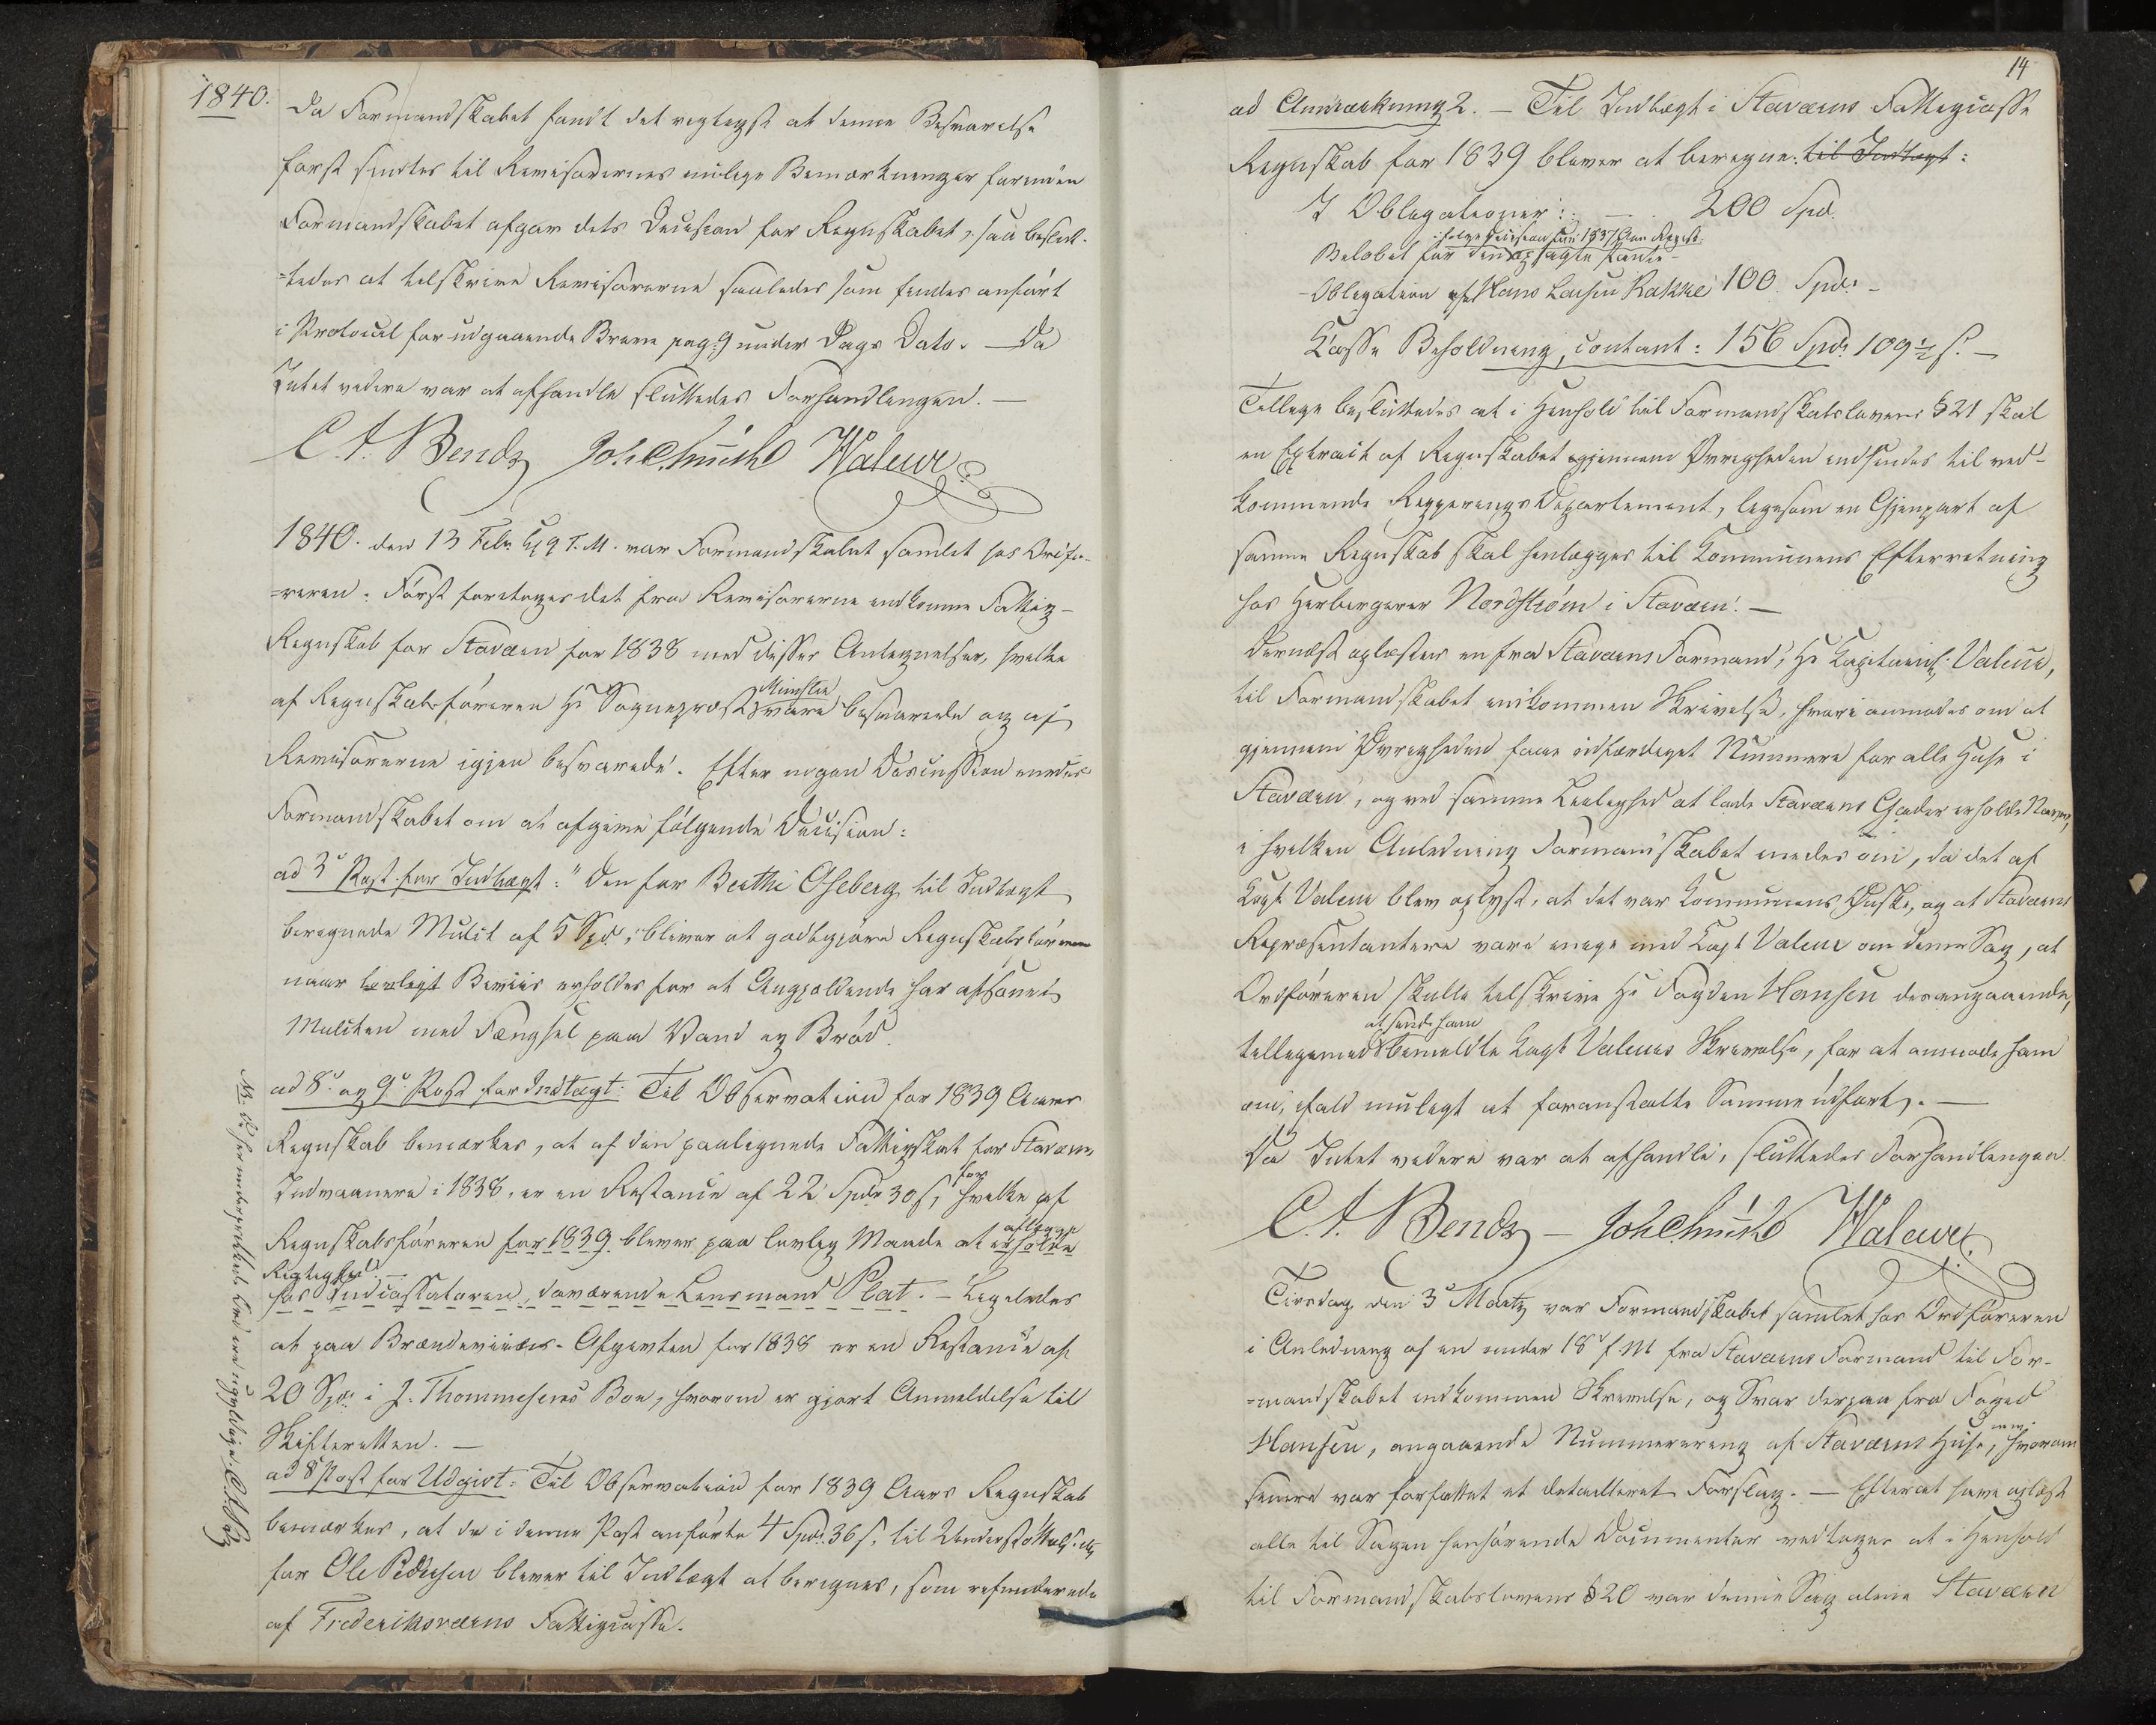 1840.
Da Formandskabet fandt det rigtigst at denne Besvarelse
først sendtes til Revisorernes mulige Bemærkninger forinden
Formandskabet afgav dets Decision for Regnskabet, saa beslut-
=tedes at tilskrive Revisorerne saaledes som findes anført
i Protocol for udgaaende Breve pag: 9 under Dags Dato. — Da
Intet videre var at afhandle sluttedes Forhandlingen. —
C. A. Bendz Joh Chmiche Waleur
1840. den 13 Febr. Kl 9 F.M. var Formandskabet samlet hos Ordfø-
=reren. Først foretoges det fra Revisorerne indkomne Fattig-
Regnskab for Staværn for 1838 med disses Antegnelser, hvilke
af Regnskabsføreren Hr Sogneprest Münster vare besvarede og af
Revisorerne igjen besvarede. Efter nogen Discussion enedes
Formandskabet om at afgive følgende Decision:
ad 3' Post for Indtægt: "Den for Berthe Oseberg til Indtægt
beregnede Mulct af 5 Spd, bliver at godtgjøre Regnskabsføreren
naar lovligt Beviis erholdes for at Angjældende har afsonet
Mulcten med Fængsel paa Vand og Brød.
ad 8' og 9' Post for Indtægt: Til Observation for 1839 Aars
Regnskab bemærkes, at af den paalignede Fattigskat for Staværns
Indvaanere i 1838, er en Restance af 22 Spdr 30 s, for hvilke af
Regnskabsføreren for 1839 bliver paa lovlig Maade at aflægge erholde
Rigtighed. —
hos Indcassatoren, daværende Lensmand Plat. — Ligeledes
at paa Brændeviins-Afgivten for 1838 er en Restance af
20 Spd. i J. Thommesens Boe, hvorom er gjort Anmeldelse til
Skifteretten. —
ad 8 Post for Udgivt: Til Observation for 1839 Aars Regnskab
bemærkes, at de i denne Post anførte 4 Spd. 36 s, til Understøttelse
for Ole Pedersen bliver til Indtægt at beregnes, som refunderede
af Frederiksværns Fattigcasse.
NB. De her underprikkede Ord ere ugyldige. C.A. Bendz
14
ad Anmærkning 2. — Til Indtægt i Staværns Fattigcasse
Regnskab for 1839 bliver at beregne: til Indtægt:
I Obligationer: — 200 Spd.
ifølge Decision for 1837 Aars Regnsk:
Beløbet for den opsagte Pante-
-Obligation af Hans Larsen Rakke 100 Spd. —
Casse Beholdning, contant: 156 Spd. 109½ s. —
Tillige besluttedes at i Henhold til Formandskabslovens § 21 skal
en Extract af Regnskabet gjennem Øvrigheden indsendes til ved-
kommende Regjerings Departement, ligesom en Gjenpart af
samme Regnskab skal henlægges til Kommunens Efterretning
hos Herbergerer Nordstrøm i Staværn. —
Dernæst oplæstes en fra Staværns Formand, Hr Kapitain Valeur,
til Formandskabet indkommen Skrivelse, hvori anmodes om at
gjennem Øvrigheden faae udfærdiget Nummere for alle Huse i
Staværn, og ved samme Leilighed at lade Staværns Gader erholde Navne,
i hvilken Anledning Formandskabet enedes om, da det af
Capt Valeur blev oplyst, at det var Kommunens Ønske, og at Staværns
Repræsentantere vare enige med Capt Valeur om denne Sag, at
Ordføreren skulle tilskrive Hr Fogden Hansen desangaaende,
at sende ham
tilligemed bemeldte Capt Valeurs Skrivelse, for at anmode ham
om, ifald muligt at foranstalte Samme udført. —
Da Intet videre var at afhandle, sluttedes Forhandlingen.
C. A. Bendz — Joh Chmiche Waleur.
Tirsdag den 3' Martz var Formandskabet samlet hos Ordføreren
i Anledning af en under 18' f M fra Staværns Formand til For-
=mandskabet indkommen Skrivelse, og Svar derpaa fra Foged
Hansen, angaaende Nummerering af Staværns Huse, hvorom
senere var forfattet et detailleret Forslag. — Efterat have oplæst
alle til Sagen henhørende Documenter vedtoges at i Henhold
til Formandskabslovens § 20 var denne Sag alene Staværn